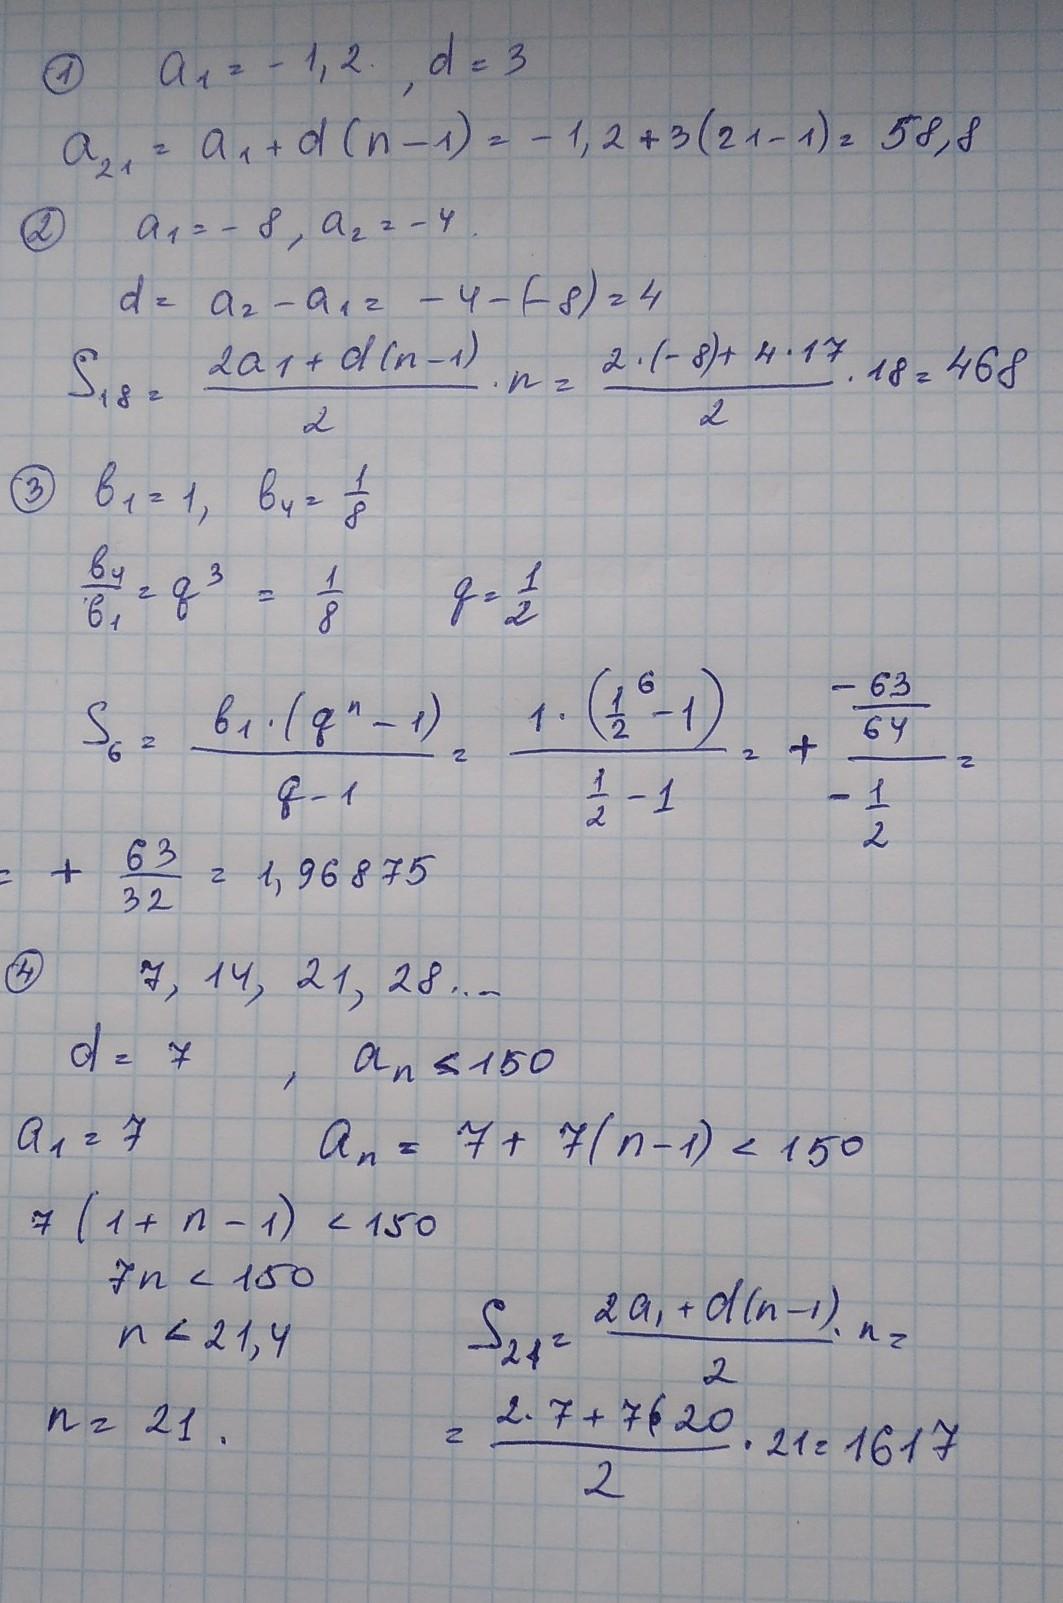 ① a₁ = -1,2. , d = 3
a₂₁ = a₁ + d(n-1) = -1,2 + 3(21-1) = 58,8
② a₁ = -8, a₂ = -4.
d = a₂ - a₁ = -4-(-8) = 4
S₁₈ = (2a₁ + d(n-1))/2 · n = (2·(-8) + 4·17)/2 · 18 = 468
③ в₁ = 1, в₄ = 1/8
в₄/в₁ = q³ = 1/8 q = 1/2
S₆ = (в₁·(qⁿ-1))/(q-1) = (1·(1/2⁶-1))/(1/2-1) = + (-63/64)/(-1/2) =
= + 63/32 = 1,96875
④ 7, 14, 21, 28...
d = 7 , aₙ < 150
a₁ = 7 aₙ = 7 + 7(n-1) < 150
7(1+n-1) < 150
7n < 150
n < 21,4 S₂₁ = (2a₁ + d(n-1))/2 · n =
n = 21. = (2·7 + 7·20)/2 · 21 = 1617